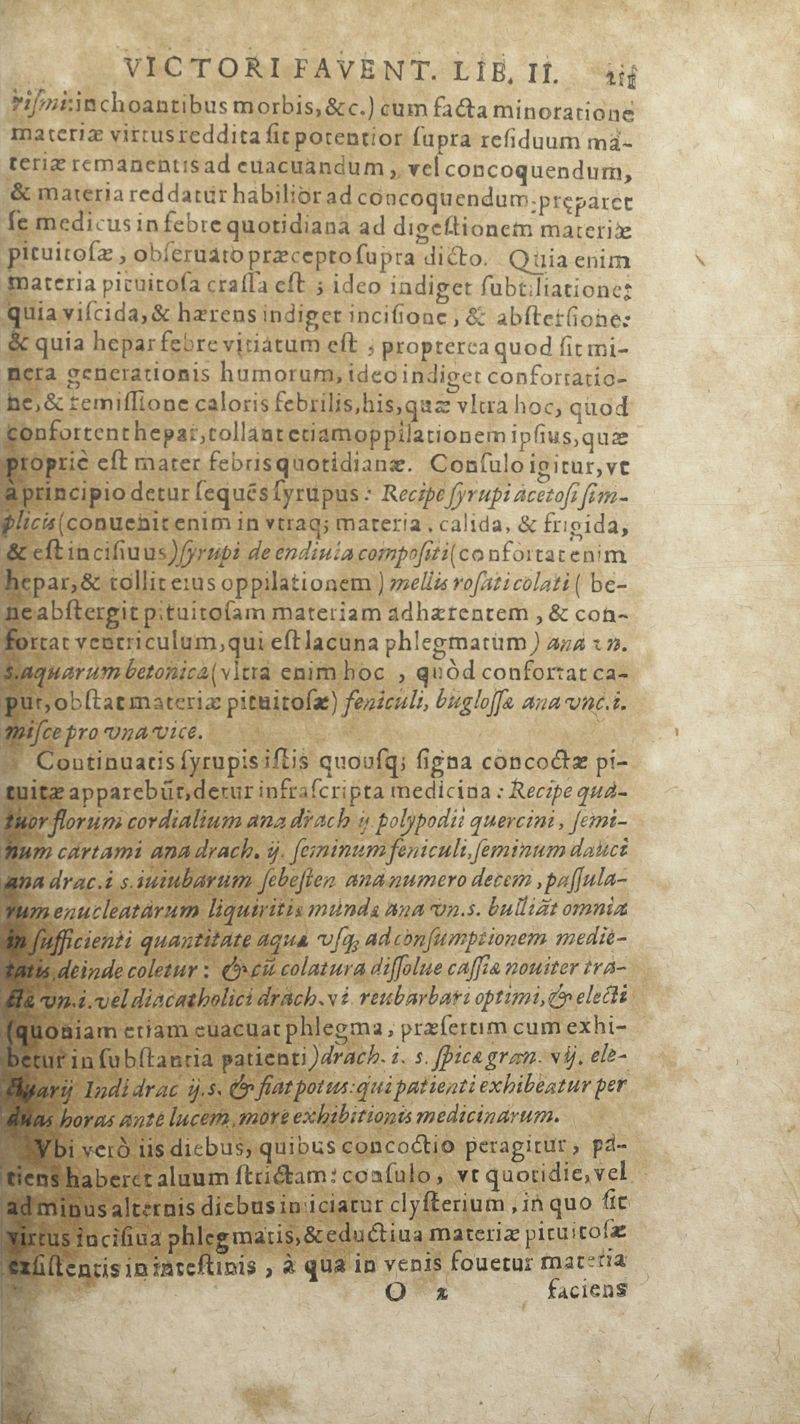 VICTORI FAVENT. LIB. II.
rismi: inchoantibus morbis, &c.) cum facta minoratione
materiæ virtus reddita sit potentior supra residuum ma-
teriæ remanentis ad euacuandum, vel concoquendum,
& materia reddatur habilior ad concoquendum: pręparet
se medicus in febre quotidiana ad digestionem materiæ
pituitosæ, obseruato præcepto supra dicto. Quia enim
materia pituitosa crassa est; ideo indiget subtiliatione:
quia viscida, & hærens indiget incisione, & abstersione:
& quia hepar febre vitiatum est, propterea quod fit mi-
nera generationis humorum, ideo indiget confortatio-
ne, & remissione caloris febrilis, his, quæ vltra hoc, quod
confortent hepar, tollant etiam oppilationem ipsius, quæ
propriè est mater febris quotidianæ. Consulo igitur, vt
à principio detur sequẽs syrupus: Recipe syrupi acetosi sim-
plicis (conuenit enim in vtraq; materia, calida, & frigida,
& est incisiuus) syrupi de endiuia compositi (confortat enim
hepar, & tollit eius oppilationem) mellis rosati colati (be-
ne abstergit pituitosam materiam adhærentem, & con-
fortat ventriculum, qui est lacuna phlegmatum) ana
s. aquarum betonicæ (vltra enim hoc, quòd confortat ca-
put, obstat materiæ pituitosæ) feniculi, buglossæ ana vnc. i.
misce pro vna vice.
Continuatis syrupis istis quousq; signa concoctæ pi-
tuitæ apparebũt, detur infrascripta medicina: Recipe qua-
tuor florum cordialium ana drach ij polypodii quercini, semi-
num cartami ana drach. ij. seminum feniculi, seminum dauci
ana drac. i s. iuiubarum sebesten ana numero decem, passula-
rum enucleatarum liquiritiæ mundæ ana vn. s. bulliãt omnia
in sufficienti quantitate aquæ vsq; ad consumptionem medie-
tatis, deinde coletur: & cũ colatura dissolue cassiæ nouiter tra-
ctæ vn. i. vel diacatholici drach. vi reubarbari optimi, & electi
(quoniam etiam euacuat phlegma, præsertim cum exhi-
betur in substantia patienti) drach. i. s. spicæ gran. vij. ele-
ctuarij Indi drac ij. s. & fiat potus: qui patienti exhibeatur per
duas horas ante lucem, more exhibitionis medicinarum.
Vbi verò iis diebus, quibus concoctio peragitur, pa-
tiens haberet aluum strictam: consulo, vt quotidie, vel
ad minus alternis diebus iniiciatur clysterium, in quo sit
virtus incisiua phlegmatis, & eductiua materiæ pituitosæ
existentis in intestinis, à qua in venis fouetur materia
O 2 faciens